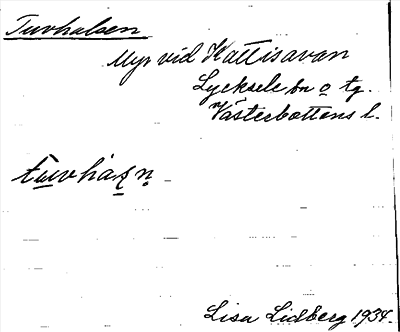 Tuvhalsen
Myr vid Kattisavan
Lycksele sn o tg.
Västerbottens l.
Lisa Lidberg 1934.